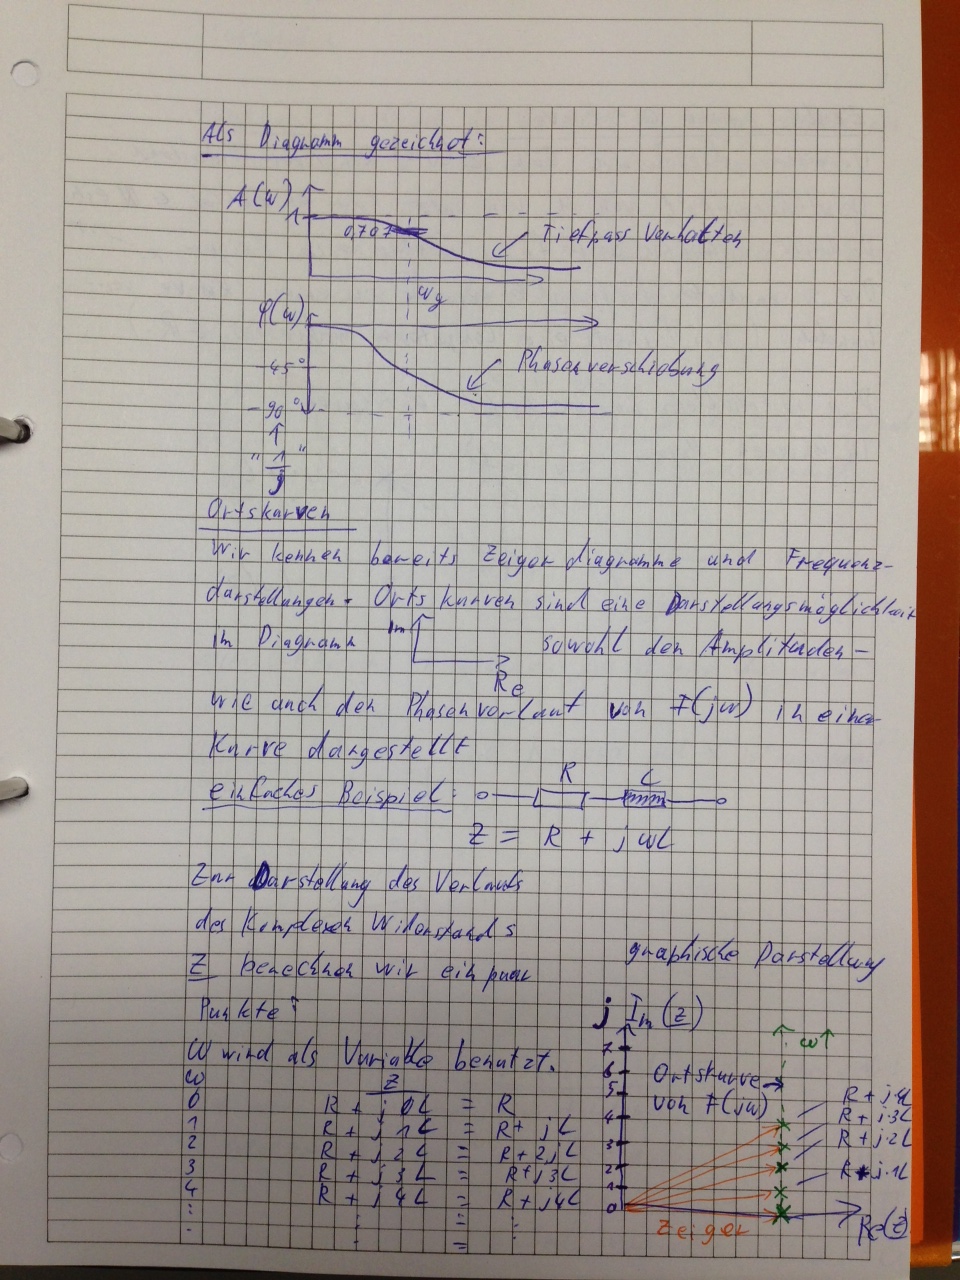 Als Diagramm gezeichnet:
A(ω)
1
0,707
Tiefpass Verhalten
ωg
φ(ω)
-45°
Phasenverschiebung
-90°
" 1/j "
Ortskurven
Wir kennen bereits Zeigerdiagramme und Frequenz-
darstellungen. Ortskurven sind eine Darstellungsmöglichkeit
im Diagramm Im Re sowohl den Amplituden-
wie auch den Phasenverlauf von F(jω) in einer
Kurve dargestellt
einfaches Beispiel: R L
Z = R + jωL
Zur Darstellung des Verlaufs
des Komplexen Widerstands
Z berechnen wir ein paar
Punkte:
ω wird als Variable benutzt.
ω Z
0 R + j0L = R
1 R + j1L = R + jL
2 R + j2L = R + 2jL
3 R + j3L = R + j3L
4 R + j4L = R + j4L
: : = :
. : =
graphische Darstellung
j Im(Z)
ω↑
7
6
5
4
3
2
1
0
Ortskurve
von F(jω)
R + j4L
R + j·3L
R + j·2L
R + j·1L
Zeiger
Re(Z)